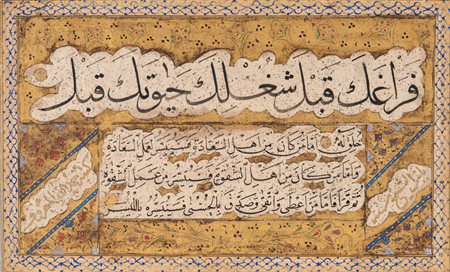 فراغك قبل شغلك حيوتك قبل
خلق له اما من كان من اهل السعادة فسييسر لعمل السعادة
واما من كان من اهل الشقوة فسييسر لعمل الشقوة
ثم قرا فاما من اعطى واتقى وصدق بالحسنى فسنيسره لليسرى